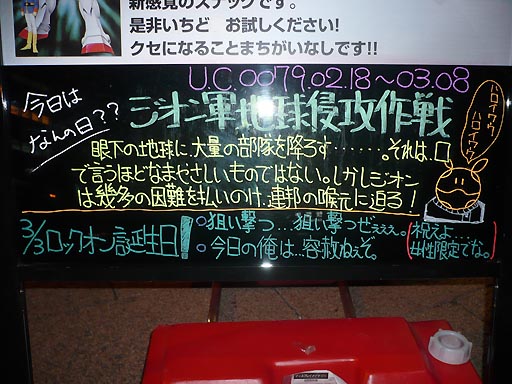 新感覚のスナックです。
是非いちど お試しください!
クセになることまちがいなしです!!
U.C.0079.02.18～03.08
今日は
なんの日??
ジオン軍地球侵攻作戦
ハロ!ウウ!
ハロ!ウウ!
眼下の地球に、大量の部隊を降ろす………。それは、口
で言うほどなまやさしいものではない。しかしジオン
は幾多の困難を払いのけ、連邦の喉元に迫る!
3/3ロックオン誕生日!
狙い撃つ…狙い撃つぜぇぇぇ。
今日の俺は…容赦ねぇぞ。
祝えよ…
女性限定でな。